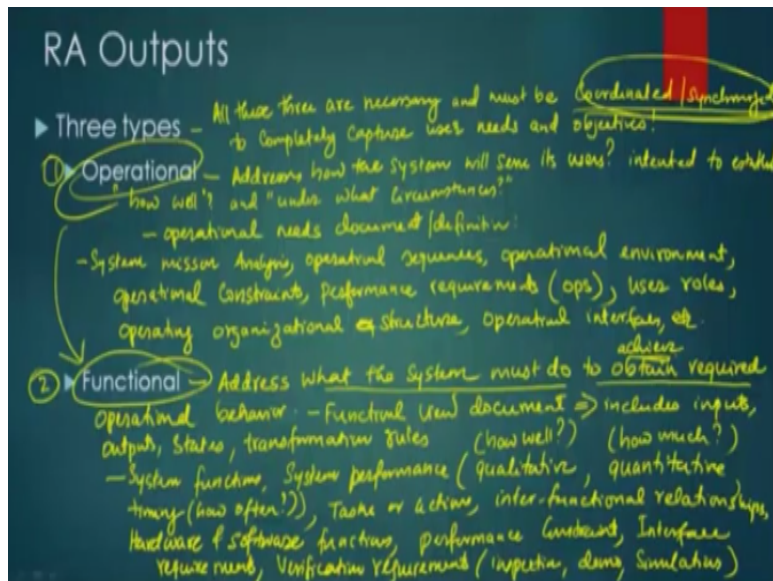 RA Outputs
Three types - All these three are necessary and must be Coordinated / Synchronized
to completely capture user needs and objectives!
① Operational - Address how the system will serve its users? intented to establish
"how well"? and "under what circumstances?"
- operational needs document / definition.
- System mission Analysis, operational sequences, operational environment,
operational constraints, performance requirements (ops), user roles,
operating organizational structure, operational interfaces, etc.
achieve
② Functional - Address what the system must do to obtain required
operational behavior. - Functional view document ⇒ includes inputs,
outputs, states, transformation rules (how well?) (how much?)
- System functions, System performance (qualitative, quantitative
timing (how often?)), Tasks or actions, inter-functional relationships,
Hardware & software functions, performance constraint, Interface
requirement, Verification requirement (inspection, demo, simulation)